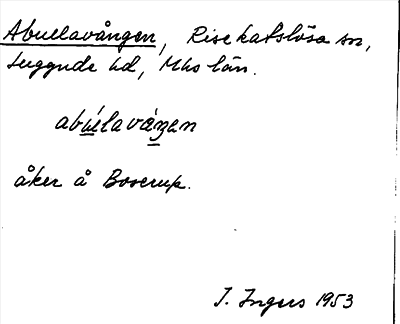 Abuellavången, Risekatslösa sn,
Luggude hd, Mhs län.
abuélavåŋen
åker å Boserup.
I. Ingers 1953